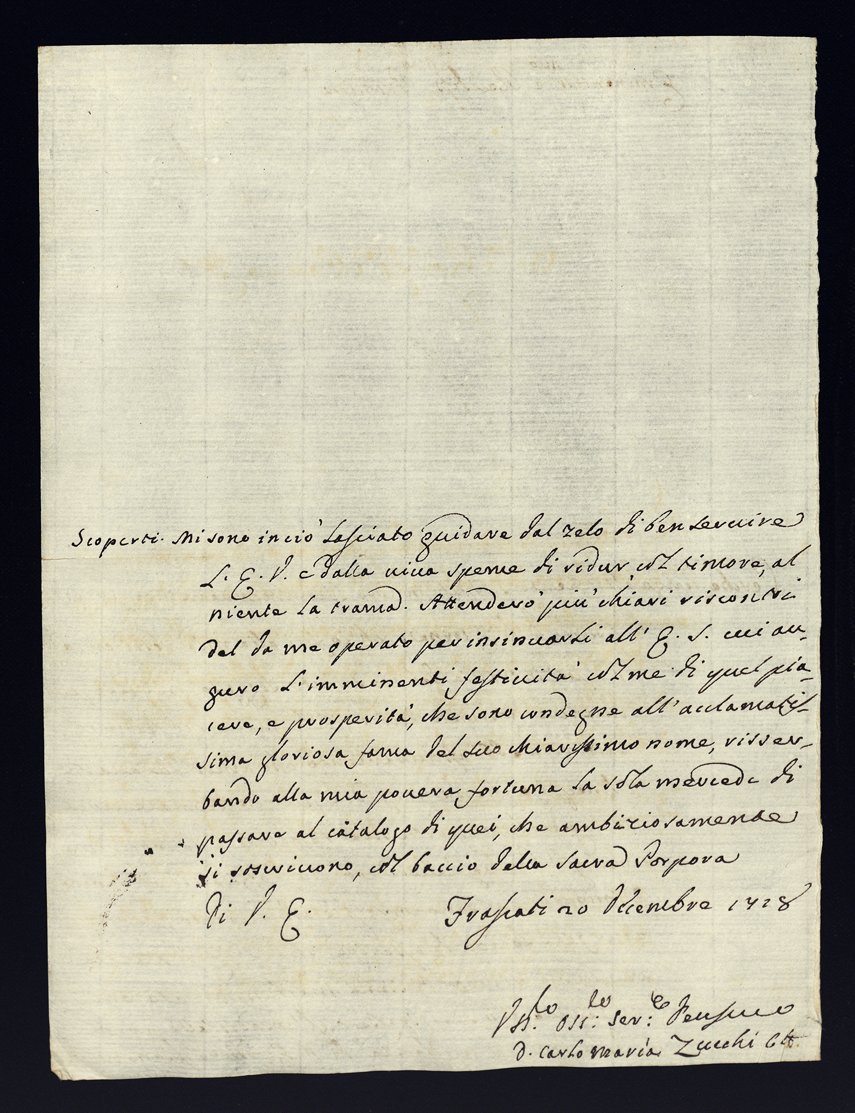 Scoperti. Mi sono in ciò lasciato guidare dal zelo di ben servire
L'E. V. e dalla viva speme di ridur col timore, al
niente la trama. Attenderò più chiari riscontri
del da me operato per insinuarli all'E. S. cui au-
guro l'imminenti festività colme di quel pia-
cere, e prosperità, che sono condegne all'acclamatis-
sima gloriosa fama del suo chiarissimo nome, risser-
bando alla mia povera fortuna la sola mercede di
passare al catalogo di quei, che ambiziosamente
si soscrivono, col baccio della Sacra Porpora
Di V. E. Frascati 20 Dicembre 1728
Oss.: Ser.:
D. Carlo Maria Zucchi